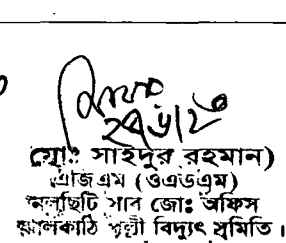 (মোঃ সাইদুর রহমান)
এজিএম (ওএন্ডএম)
নলছিটি সাব জোঃ অফিস
ঝালকাঠি পল্লী বিদ্যুৎ সমিতি।